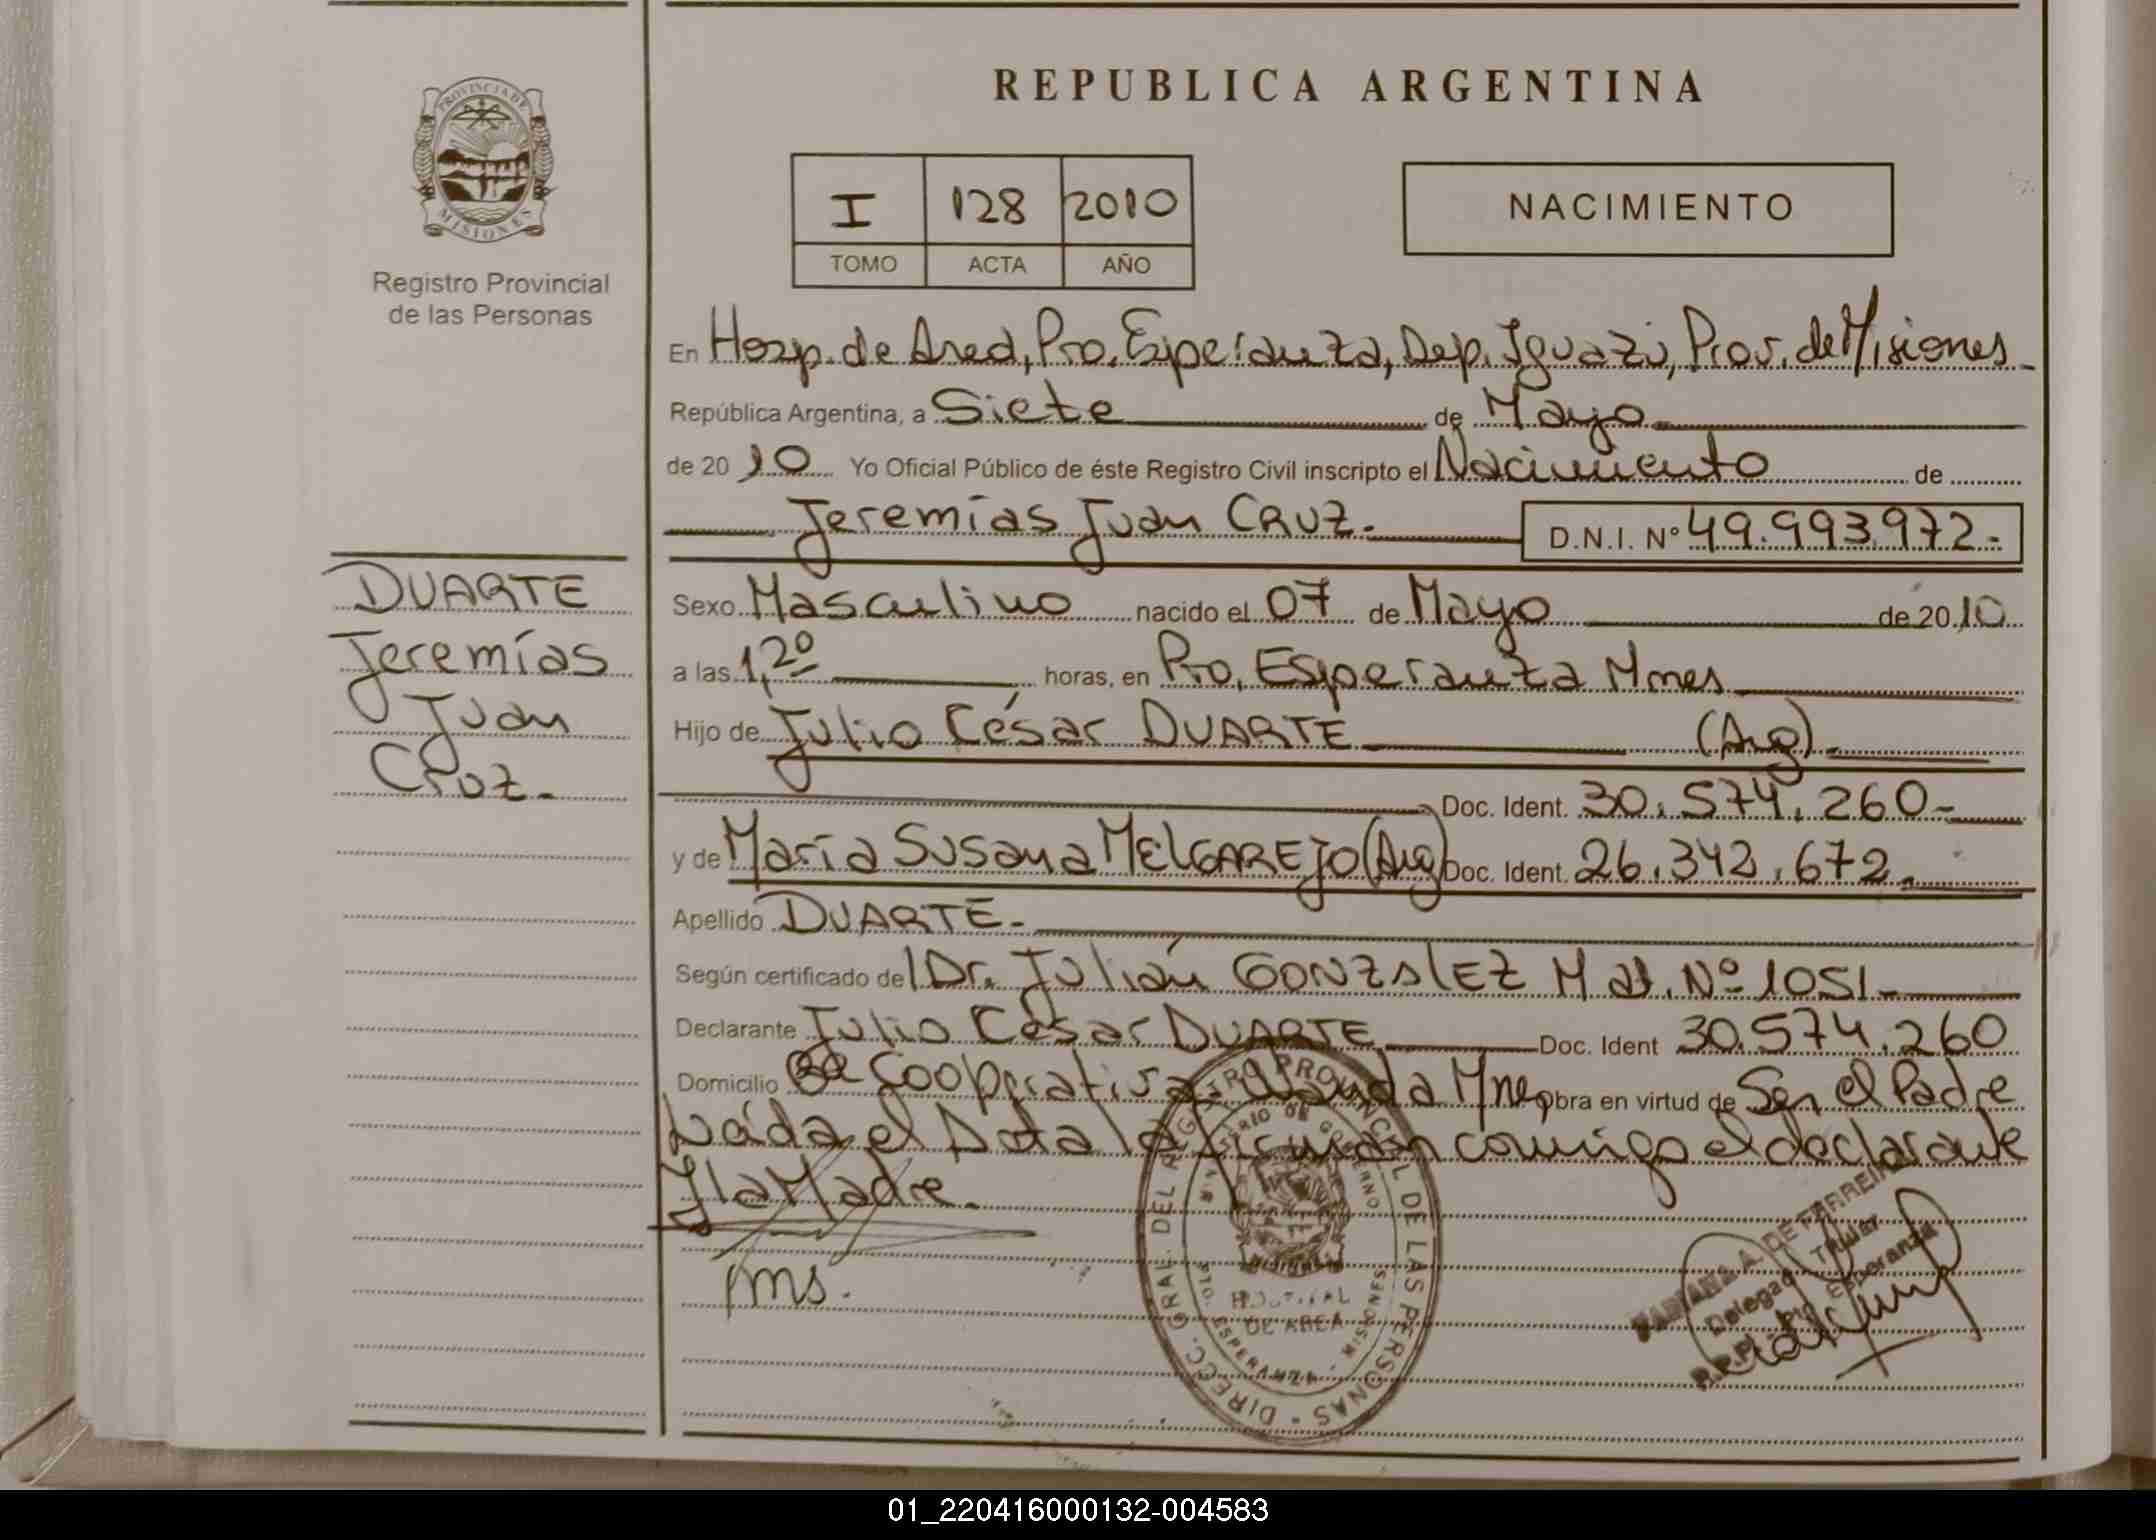 REPUBLICA ARGENTINA
PROVINCIA DE
MISIONES
Registro Provincial
de las Personas
I 128 2010
TOMO ACTA AÑO
NACIMIENTO
En Hosp. de Area, Pto. Esperanza, Dep. Iguazú, Prov. de Misiones
República Argentina, a Siete de Mayo
de 20 10 Yo Oficial Público de éste Registro Civil inscripto el Nacimiento de
Jeremías Juan CRUZ. D.N.I. Nº 49.993.972.-
DUARTE
Jeremías
Juan
Cruz.-
Sexo Masculino nacido el 07 de Mayo de 20 10
a las 1,20 horas, en Pto. Esperanza Mnes
Hijo de Julio César DUARTE (Arg).
Doc. Ident. 30.574.260-
y de María Susana MELGAREJO (Arg) Doc. Ident. 26.342.672.
Apellido DUARTE.
Según certificado del Dr. Julián GONZALEZ Mat. Nº 1051-
Declarante Julio César DUARTE Doc. Ident 30.574.260
Domicilio Cooperativa Wanda Mnes obra en virtud de Ser el Padre
el Acta la firman conmigo el declarante
Y la Madre.
ms.
DIRECC. GRAL. DEL REGISTRO PROVINCIAL DE LAS PERSONAS
MINISTERIO DE GOBIERNO
HOSPITAL
DE AREA
PTO. ESPERANZA - MISIONES
A. DE FERREIRA
Delegada Titular
R.P.P. Pto Esperanza
01_220416000132-004583